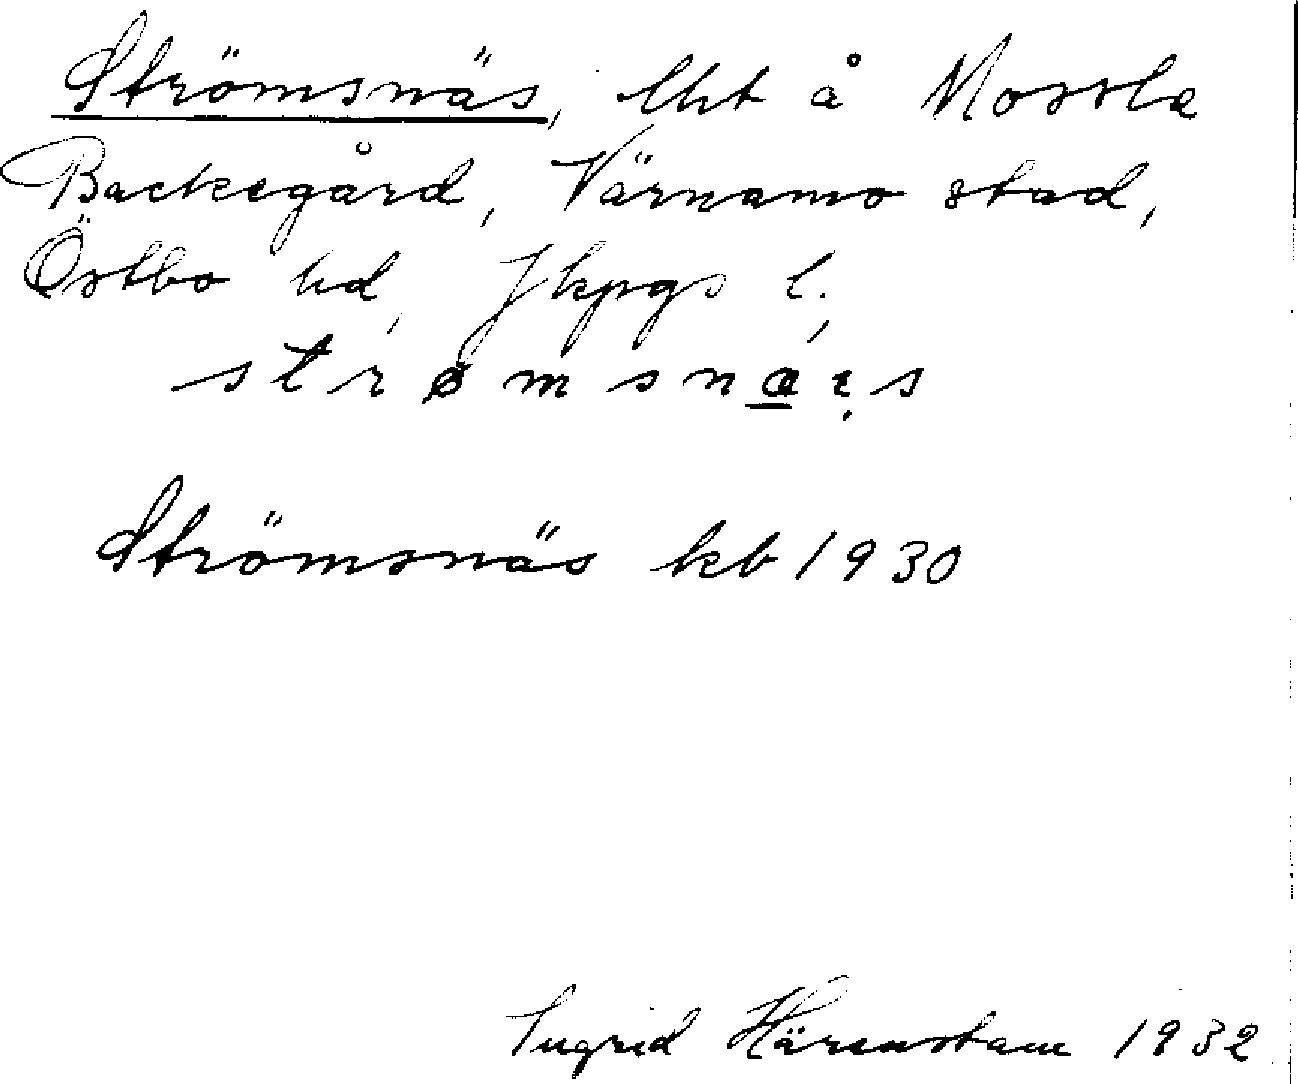 Strömsnäs, lht å Mossle
Backegård, Värnamo stad,
Östbo hd, Jkpgs l.,
strømsnæ̲ɩ̣s
Strömsnäs kb 1930
Ingrid Härenstam 1932